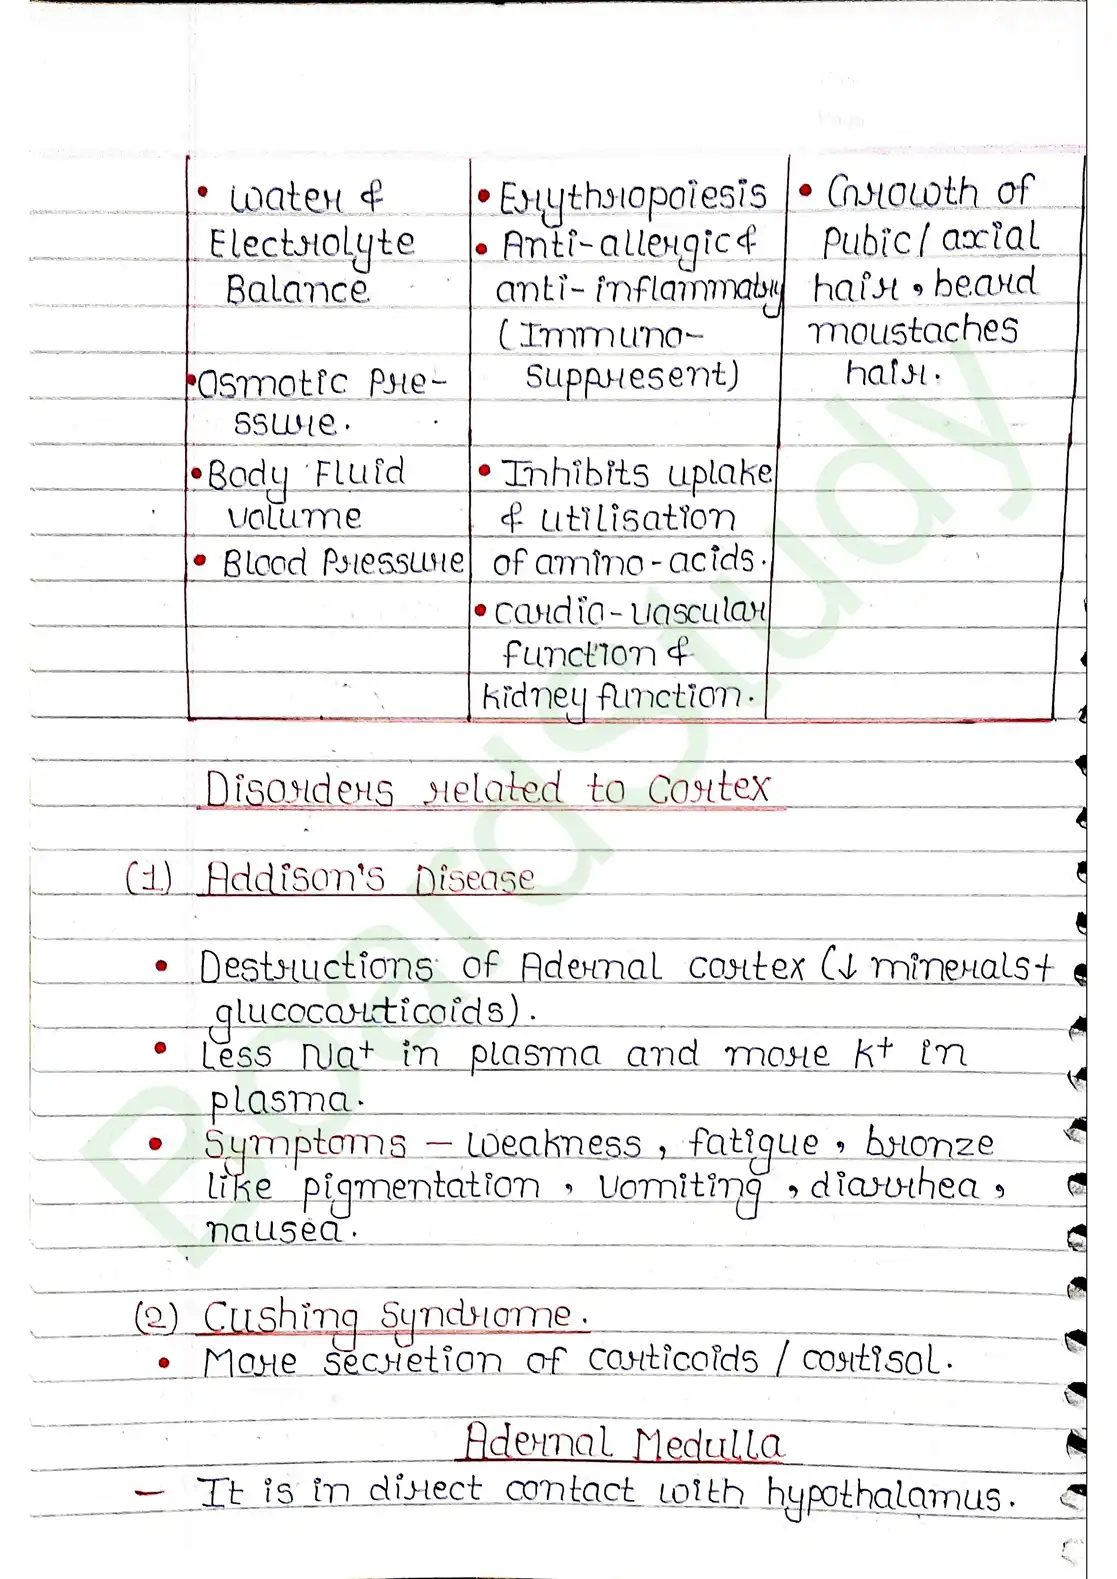 • Water &
Electrolyte
Balance
•Osmotic Pre-
ssure.
•Body Fluid
volume
• Blood Pressure
• Erythropoiesis
• Anti-allergic &
anti-inflammatory
(Immuno-
suppresent)
• Inhibits uplake
& utilisation
of amino-acids.
• cardio-vascular
function &
kidney function.
• Growth of
Pubic/axial
hair, beard
moustaches
hair.
Disorders related to Cortex
(1) Addison's Disease
• Destructions of Adernal cortex (↓ minerals+
glucocorticoids).
• Less Na+ in plasma and more K+ in
plasma.
• Symptoms — weakness, fatigue, bronze
like pigmentation, vomiting, diarrhea,
nausea.
(2) Cushing Syndrome.
• More secretion of corticoids / cortisol.
Adernal Medulla
— It is in direct contact with hypothalamus.
BoardSjudy